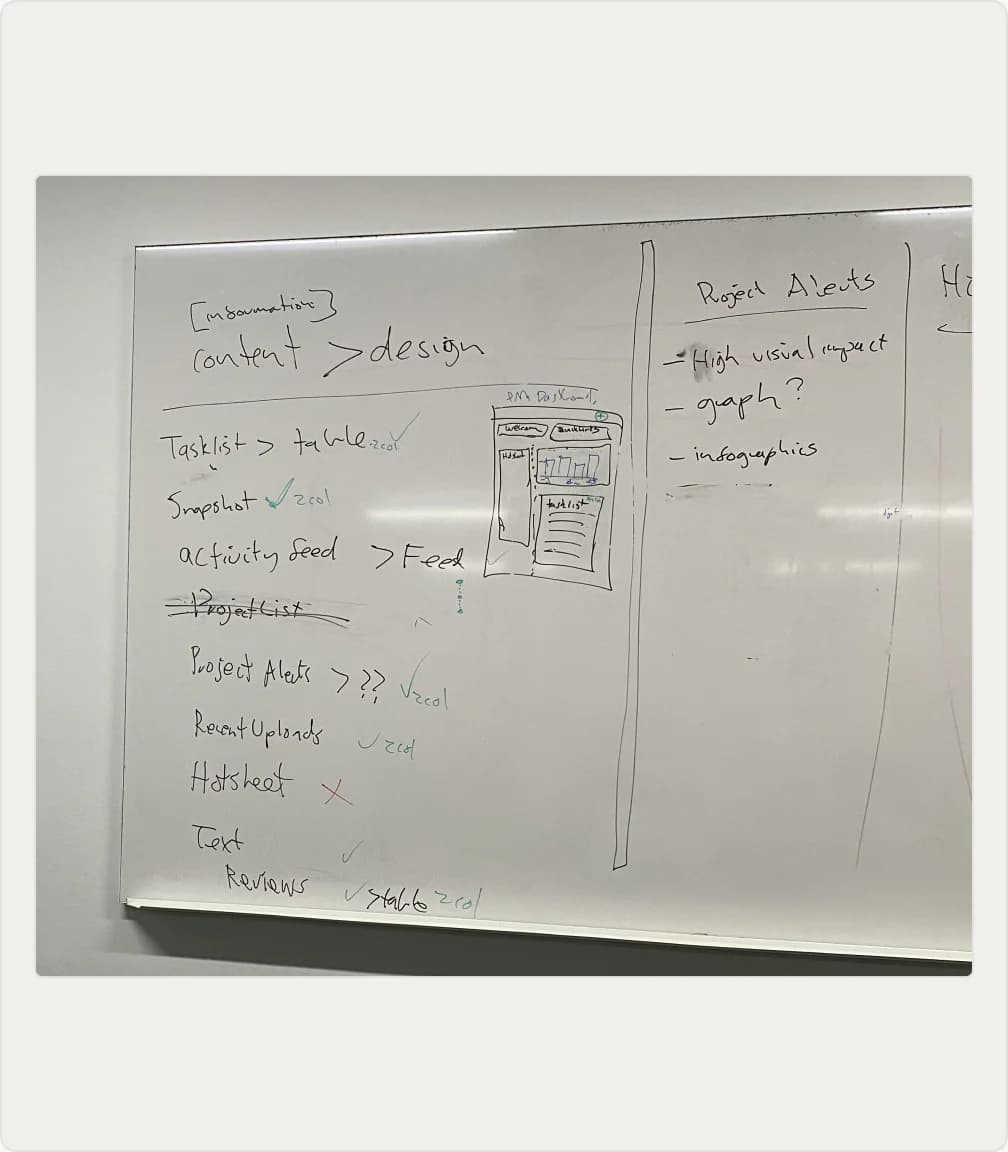 [Information]
content > design
Tasklist > table 2col ✓
Snapshot ✓ 2col
activity feed > Feed
Project List
Project Alerts > ?? ✓ 2col
Recent Uploads ✓ 2col
Hotsheet ✗
Text ✓
Reviews ✓ > table 2col
PM Dashboard
welcome
Quicklinks
Hotsheet
tasklist
Project Alerts
- High visual impact
- graph ?
- infographics